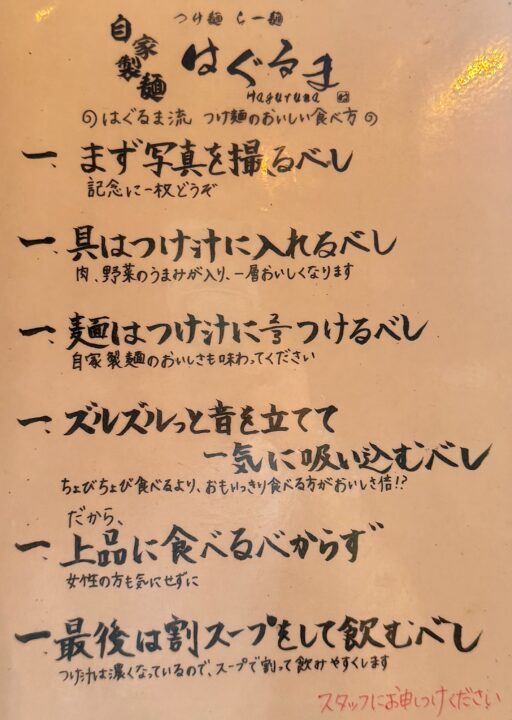 つけ麺 らー麺
自家製麺
はぐるま
Haguruma
はぐるま流 つけ麺のおいしい食べ方
一、まず写真を撮るべし
記念に一枚どうぞ
一、具はつけ汁に入れるべし
肉、野菜のうまみが入り、一層おいしくなります
一、麺はつけ汁に2/3つけるべし
自家製麺のおいしさも味わってください
一、ズルズルっと音を立てて
一気に吸い込むべし
ちょびちょび食べるより、おもいっきり食べる方がおいしさ倍!?
だから、
一、上品に食べるべからず
女性の方も気にせずに
一、最後は割スープをして飲むべし
つけ汁は濃くなっているので、スープで割って飲みやすくします
スタッフにお申しつけください